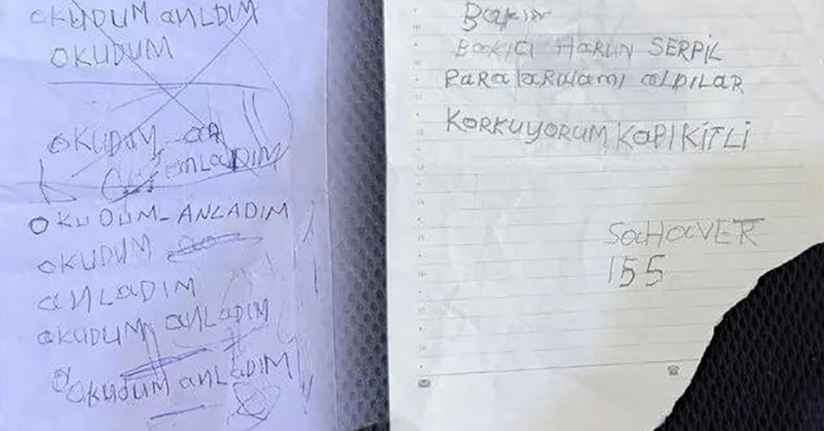 OKUDUM ANLDIM
OKUDUM
OKUDUM
ANLADIM
OKUDUM-ANLADIM
OKUDUM
ANLADIM
OKUDUM ANLADIM
OKUDUM ANLADIM
BAKICI HARUN SERPİL
PARALARIMI ALDILAR
KORKUYORUM KAPI KİTLİ
SAHAVER
155